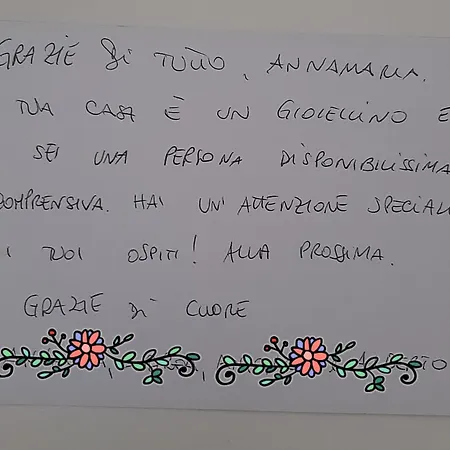 GRAZIE DI TUTTO, ANNAMARIA.
TUA CASA È UN GIOIELLINO E
SEI UNA PERSONA DISPONIBILISSIMA
COMPRENSIVA. HAI UN'ATTENZIONE SPECIAL
I TUOI OSPITI! ALLA PROSSIMA.
GRAZIE DI CUORE